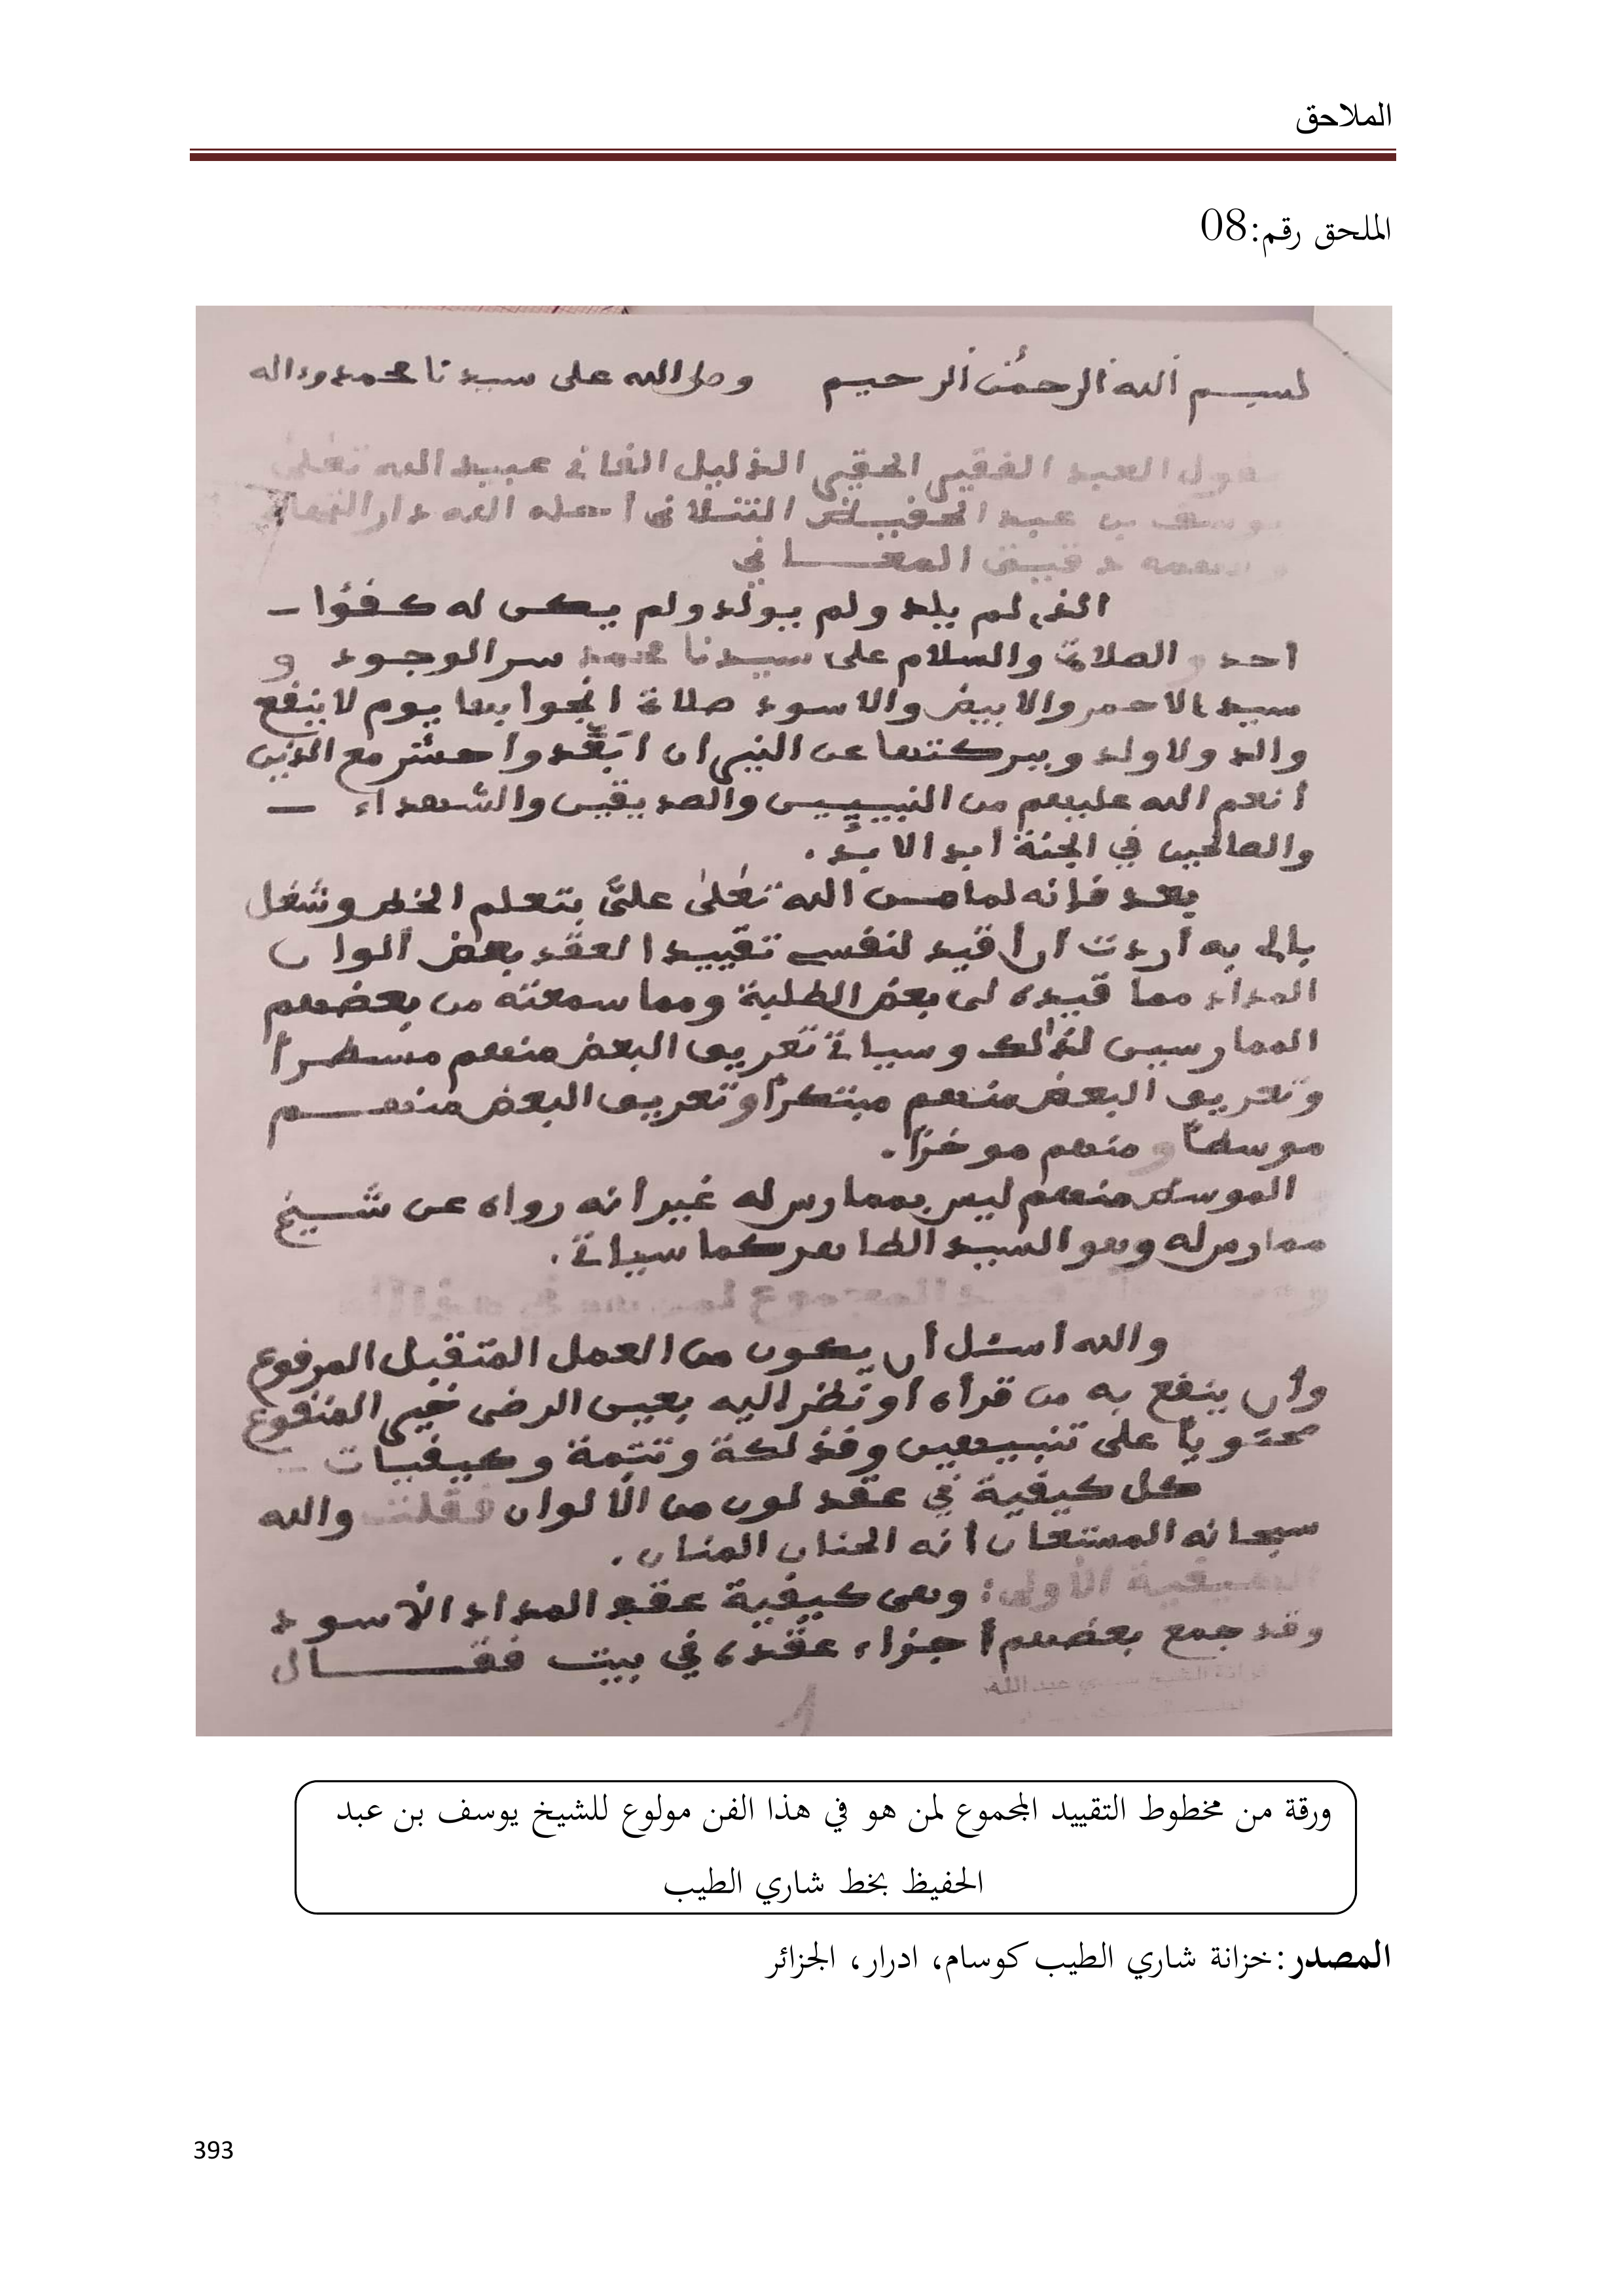 الملاحق
الملحق رقم:08
بسم الله الرحمٰن الرحيم وصلى الله على سيدنا محمد وءاله
يقول العبد الفقير الحقير الذليل الفاني عبيد الله تعلى
يوسف بن عبد الحفيظ التنلاني أحله الله دار التهاني
دقيق المعاني
الذي لم يلد ولم يولد ولم يكن له كفؤا
أحد والصلاة والسلام على سيدنا محمد سر الوجود و
سيد الاحمر والابيض والاسود صلاة انجوا بها يوم لا ينفع
والد ولا ولد وببركتها عن النيران ابعد واحشر مع الذين
أنعم الله عليهم من النبييين والصديقين والشهداء
والصالحين في الجنة أبد الابد.
بعد فإنه لما من الله تعلى عليَّ بتعلم الخط وشغل
بالي به أردت أن أقيد لنفسي تقييد العقد بعض ألوان
المداد مما قيده لي بعض الطلبة ومما سمعته من بعضهم
الممارسين لذلك وسياتي تعريف البعض منهم مسطراً
وتعريف البعض منهم مبتكراً وتعريف البعض منهم
موسطاً ومنهم موخزا.
الموسط منهم ليس بممارس له غير أنه رواه عن شيخ
ممارس له وهو السيد الطاهر كما سياتي.
والله أسئل أن يكون من العمل المتقبل المرفوع
وأن ينفع به من قرأه أو نظر اليه بعين الرضى خير المنفوع
محتوياً على تنبيهين وفذلكة وتتمة وكيفيات
كل كيفية في عقد لون من الألوان فقلت والله
سبحانه المستعان أنه الحنان المنان.
الكيفية الأولى: وهي كيفية عقد المداد الأسود
وقد جمع بعضهم أجزاء عقده في بيت فقال
1
ورقة من مخطوط التقييد المجموع لمن هو في هذا الفن مولوع للشيخ يوسف بن عبد
الحفيظ بخط شاري الطيب
المصدر:خزانة شاري الطيب كوسام، ادرار، الجزائر
393